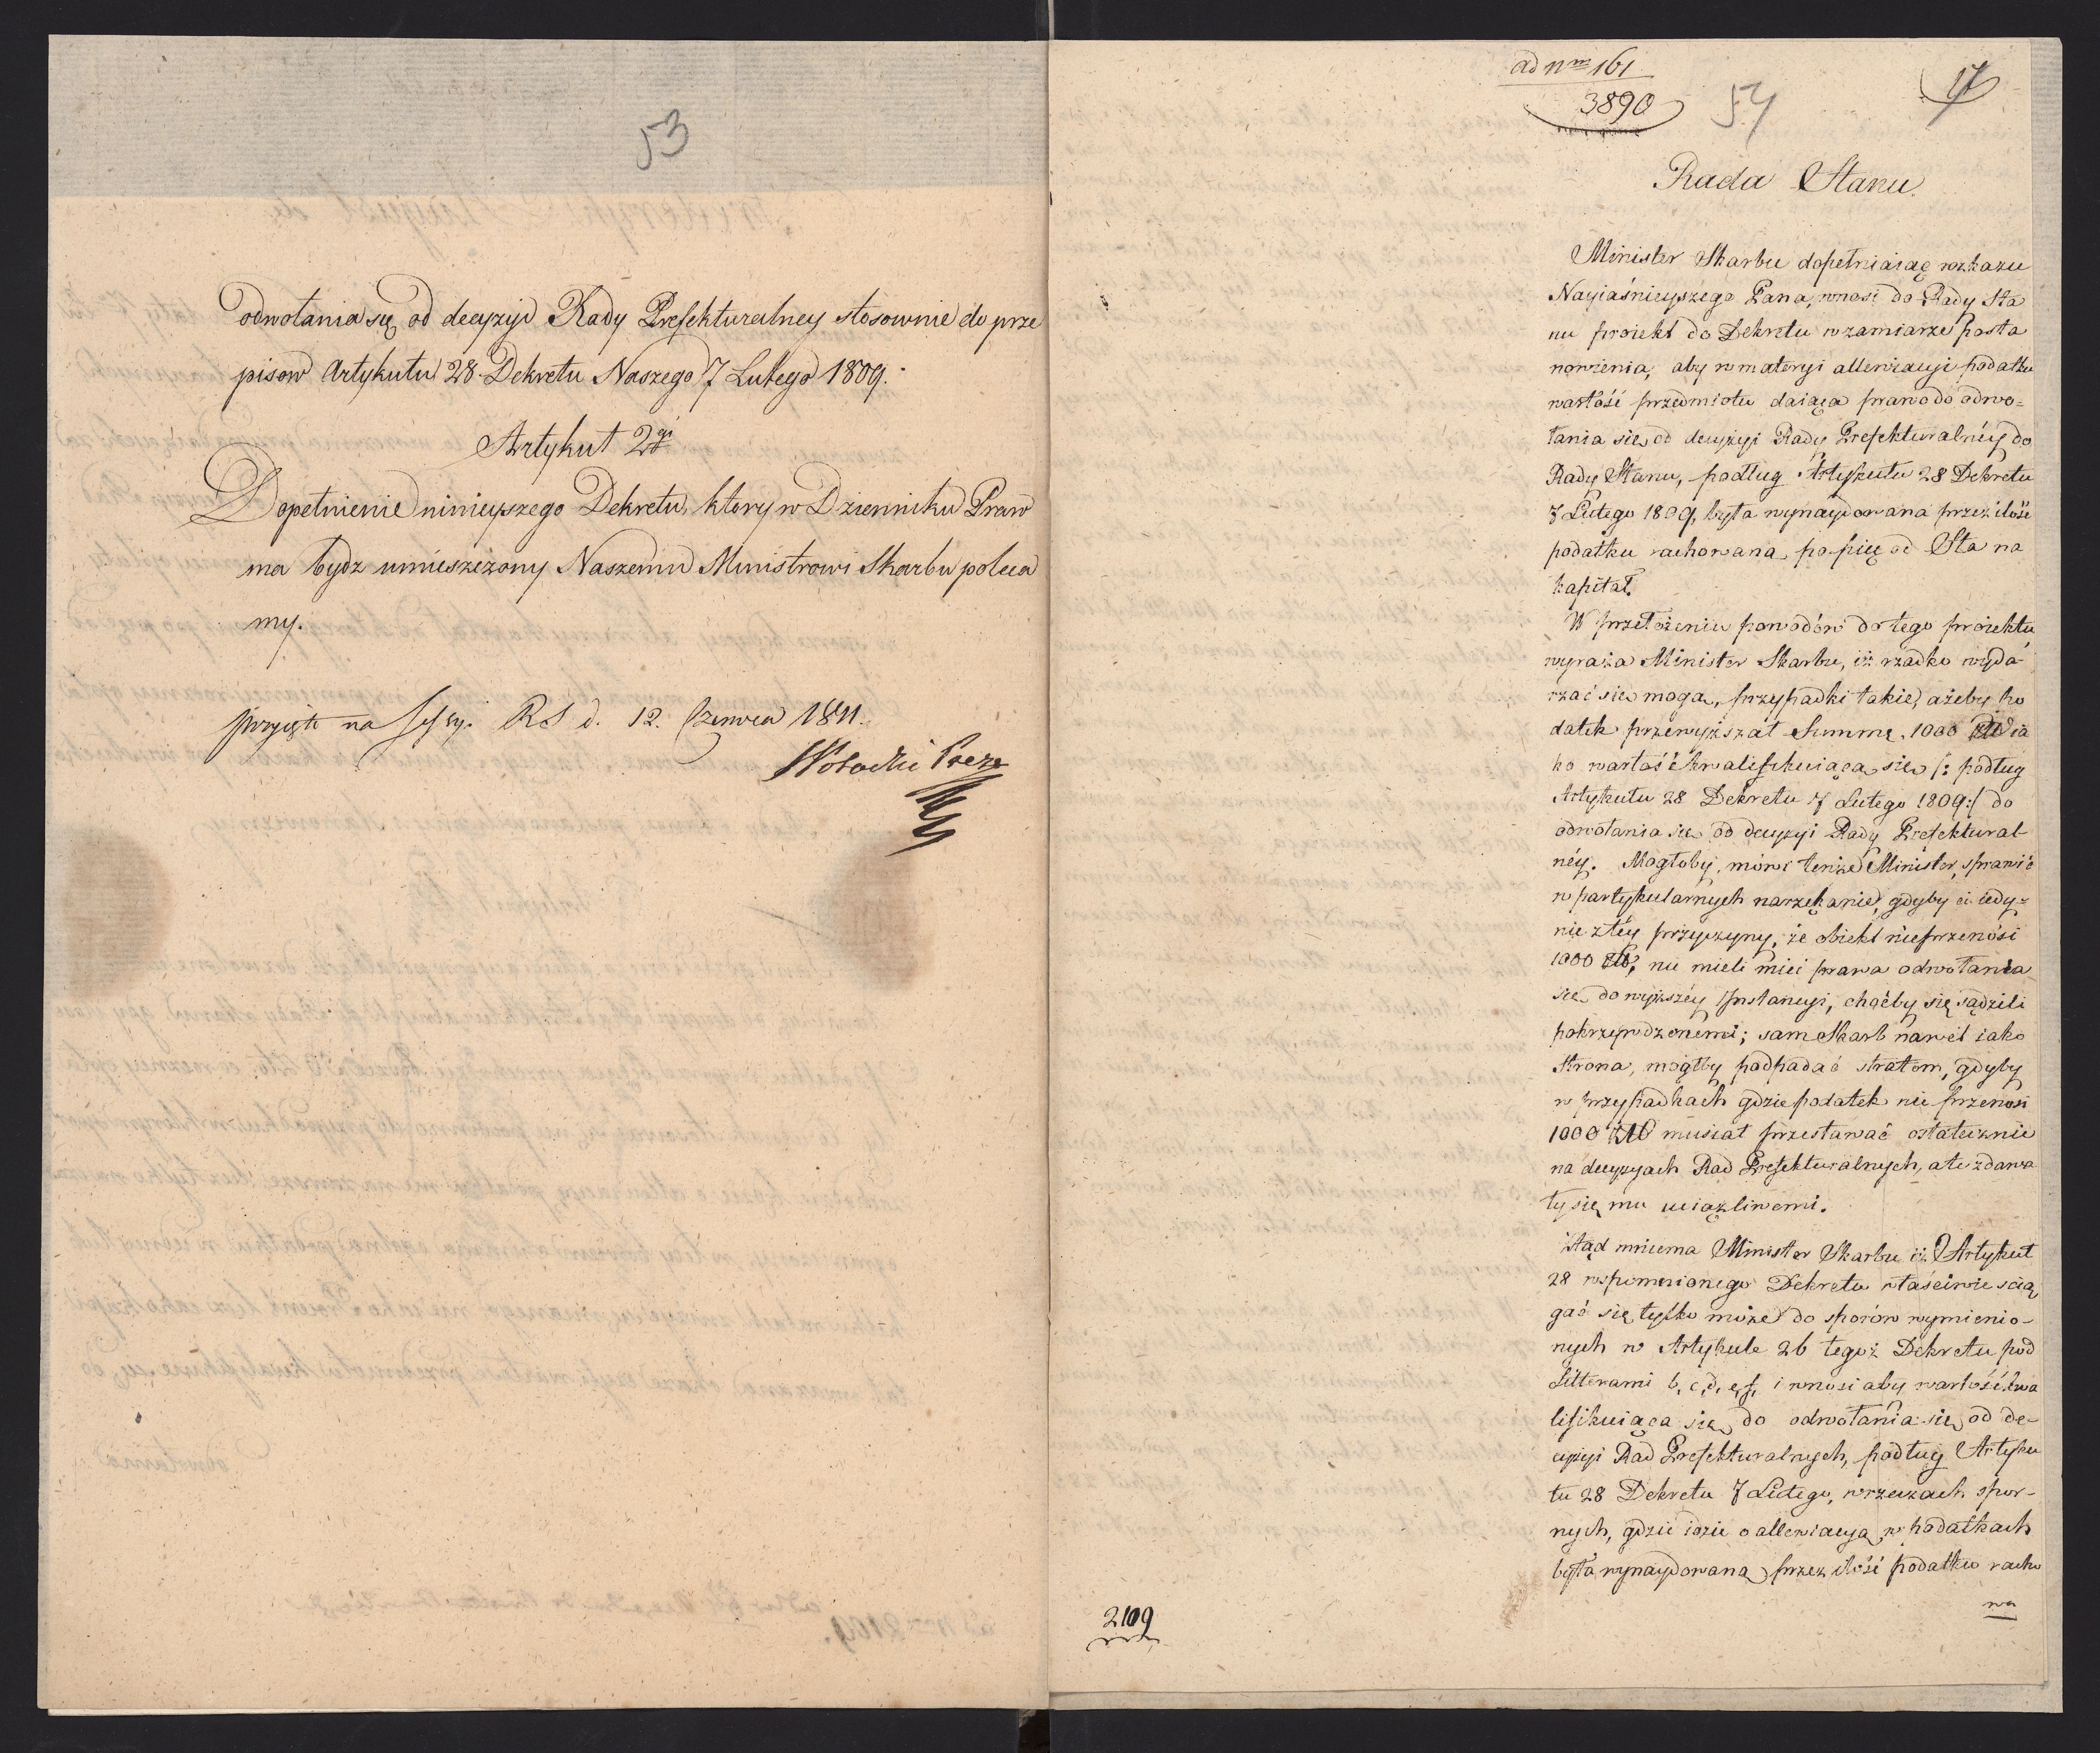 53
odwołania się od decyzyi Rady Prefekturalney stosownie do prze
pisow Artykułu 28. Dekretu Naszego 7 Lutego 1809.
Artykuł 2gi
Dopełnienie ninieyszego Dekretu, ktory w Dzienniku Praw
ma bydz umieszczony Naszemu Ministrowi Skarbu poleca
my.
przyięte na Sessyi RS d. 12. Czerwca 1811.
ad nm 161
3890
54
17
Rada Stanu.
Minister Skarbu dopełniaiąc rozkazu
Nayiaśnieyszego Pana, wnosi do Rady Sta
nu proiekt do Dekretu w zamiarze posta
nowienia, aby w materyi allewiacyi podatku
wartość przedmiotu daiąca prawo do odwo=
łania się od decyzyi Rady Prefekturalnéy do
Rady Stanu, podług Artykułu 28 Dekretu
7 Lutego 1809, była wynaydowana przez ilość
podatku rachowana po pięć od Sta na
kapitał.
W przełożeniu powodów do tego proiektu
wyraża Minister Skarbu, iż rzadko wyda-
rzać się mogą, przypadki takie, ażeby po
datek przewyższał Summę 1000 Zło ia
ko wartość kwalifikuiąca się /: podług
Artykułu 28 Dekretu 7 Lutego 1809:/ do
odwołania się od decyzyi Rady Prefektural-
néy. Mogłoby, mówi tenże Minister, sprawić
w partykularnych narzekanie, gdyby ci iedy=
nie z téy przyczyny, że obiekt nieprzenosi
1000 Zło, nie mieli mieć prawa odwołania
się do wyższéy Instancyi, choćby się sądzili
pokrzywdzonemi; sam Skarb nawet iako
Strona, mógłby podpadać stratom, gdyby
w przypadkach gdzie podatek nie przenosi
1000 Zło musiał przestawać ostatecznie
na decyzyach Rad Prefekturalnych, a te zdawa
ły się mu uciążliwemi.
Stąd mniema Minister Skarbu iż Artykuł
28 wspomnionego Dekretu właściwie scią
gać się tylko może do sporów wymienio-
nych w Artykule 26 tegoż Dekretu pod
Litterami b, c, d, e, f, i wnosi aby wartość kwa
lifikuiąca się do odwołania się od de-
cyzyi Rad Prefekturalnych, podług Artyku
łu 28 Dekretu 7 Lutego, w rzeczach spor-
nych, gdzie idzie o allewiacyą w podatkach
była wynaydowana przez ilość podatku racho
wa
2109